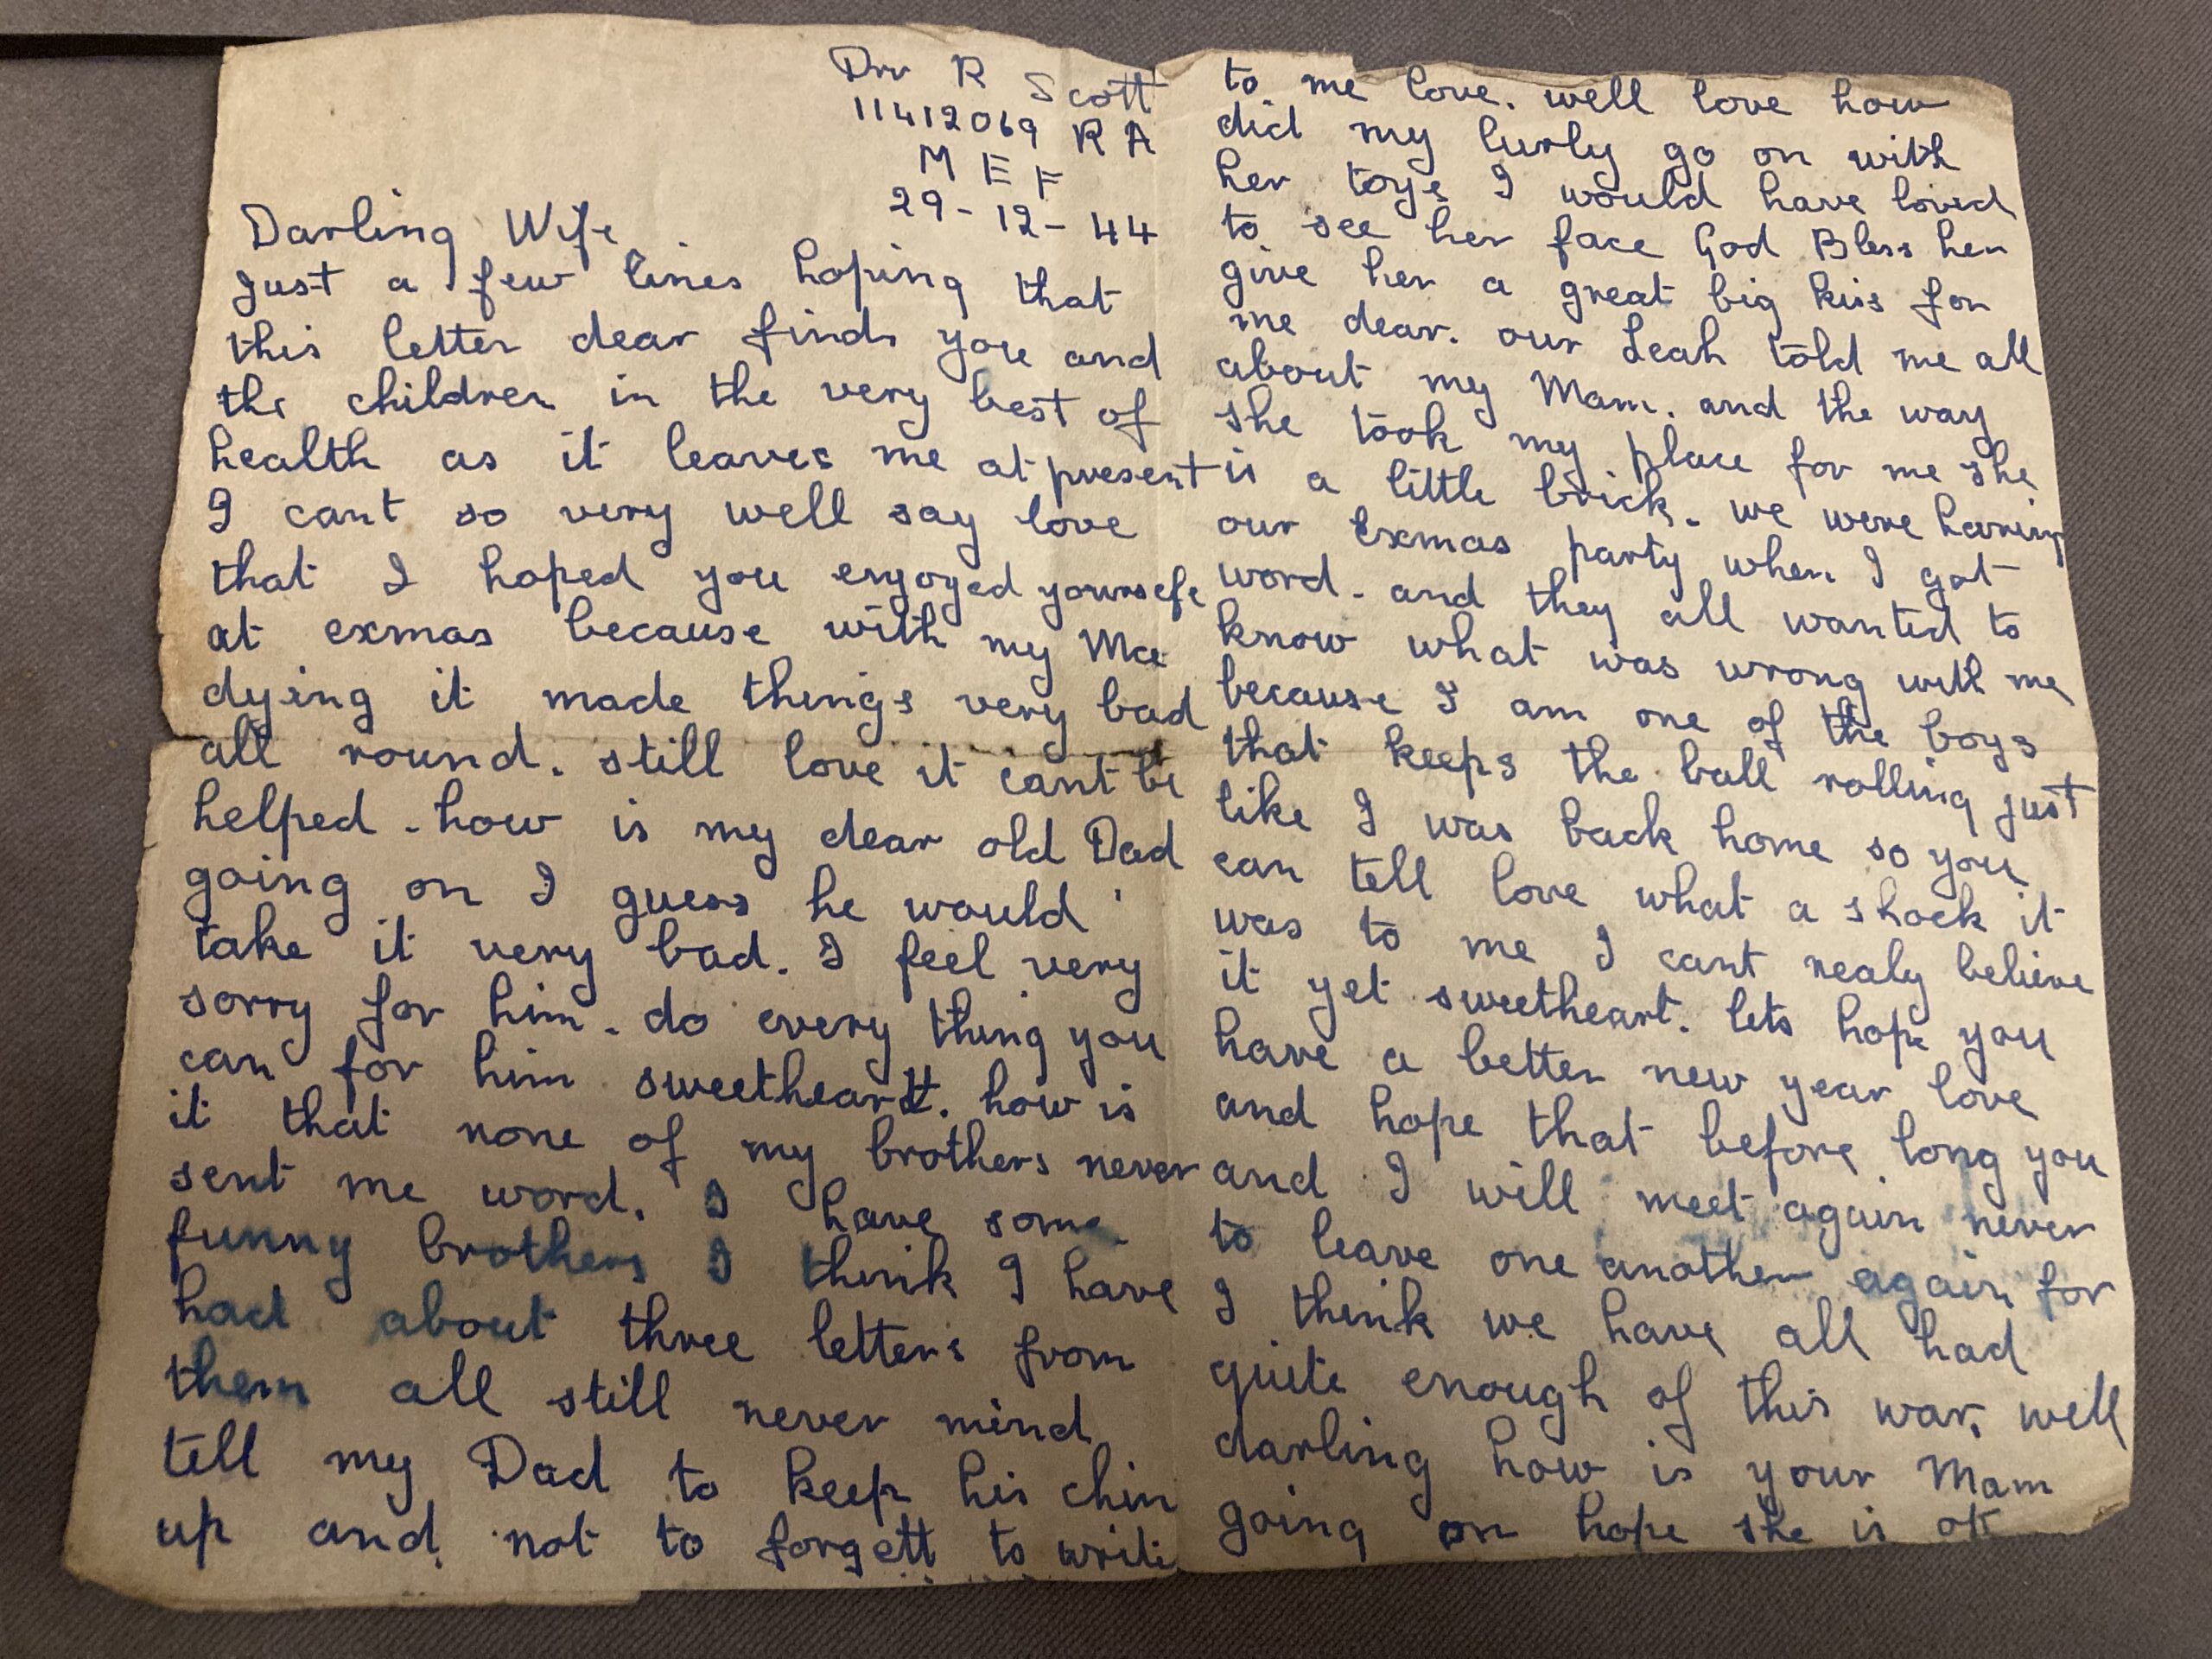 Drv R Scott
11412069 R A
M E F
29-12-44
Darling Wife
Just a few lines hoping that
this letter dear finds you and
the children in the very best of
health as it leaves me at present
I cant so very well say love
that I hoped you enjoyed yourself
at exmas because with my Ma
dying it made things very bad
all round. still love it cant be
helped. how is my dear old Dad
going on I guess he would
take it very bad. I feel very
sorry for him. do every thing you
can for him sweetheart. how is
it that none of my brothers never
sent me word. I have some
funny brothers I think I have
had about three letters from
them all still never mind
tell my Dad to keep his chin
up and not to forgett to write
to me love. well love how
did my lurly go on with
her toys I would have loved
to see her face God Bless her
give her a great big kiss for
me dear. our Leah told me all
about my Mam. and the way
she took my place for me she
is a little brick. we were having
our Exmas party when I got
word. and they all wanted to
know what was wrong with me
because I am one of the boys
that keeps the ball rolling just
like I was back home so you
can tell love what a shock it
was to me I cant realy believe
it yet sweetheart. lets hope you
have a better new year love
and hope that before long you
and I will meet again never
to leave one another again for
I think we have all had
quite enough of this war. well
darling how is your Mam
going on hope she is ok